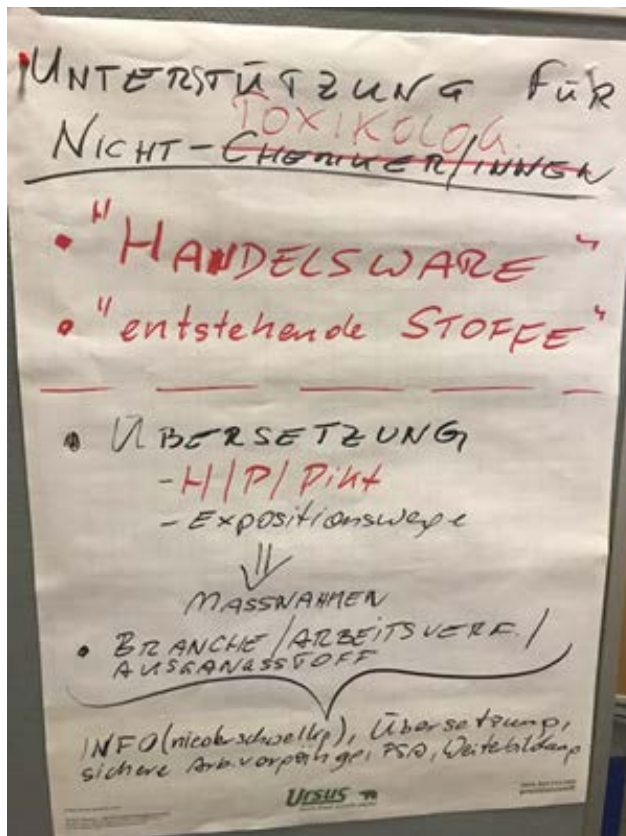 UNTERSTÜTZUNG FÜR
TOXIKOLOG.
NICHT-CHEMIKER/INNEN
• "HANDELSWARE"
• "entstehende STOFFE"
• ÜBERSETZUNG
- H/P/Pikt
- Expositionswege
MASSNAHMEN
• BRANCHE/ARBEITSVERF./
AUSGANGSSTOFF
INFO (niederschwellig), Übersetzung,
sichere Arb.vorgänge, PSA, Weiterbildung
Ursus